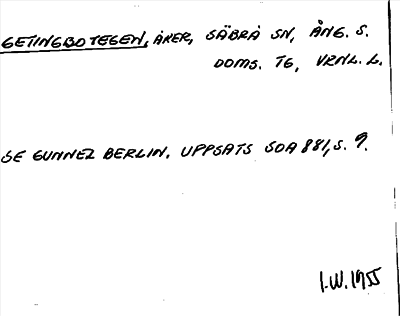 GETINGBOTEGEN, ÅKER, SÄBRÅ SN, ÅNG. S.
DOMS. TG, VRNL. L.
SE GUNNEL BERLIN. UPPSATS SOA 881, S. 9.
I.W. 1955